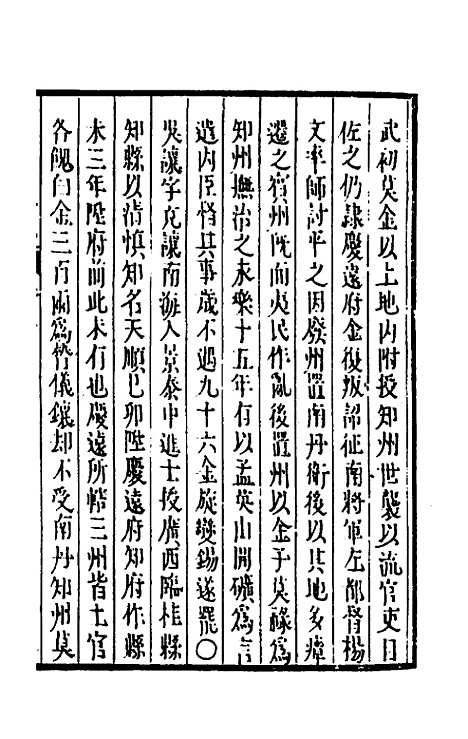 武初莫金以土地内附授知州世襲以流官吏目
佐之仍隸慶遠府金復叛詔征南將軍左都督楊
文率師討平之因廢州置南丹衛後以其地多瘴
遷之賓州既而夷民作亂後置州以金子莫祿爲
知州撫治之永樂十五年有以孟英山開礦爲言
遣内臣督其事歳不過九十六金旋變錫遂罷〇
吳讓字克讓南海人景泰中進士授廣西臨桂縣
知縣以清慎知名天順己卯陞慶遠府知府作縣
未三年陞府前此未有也慶遠所轄三州皆土官
各餽白金三百兩爲贄儀讓却不受南丹知州莫